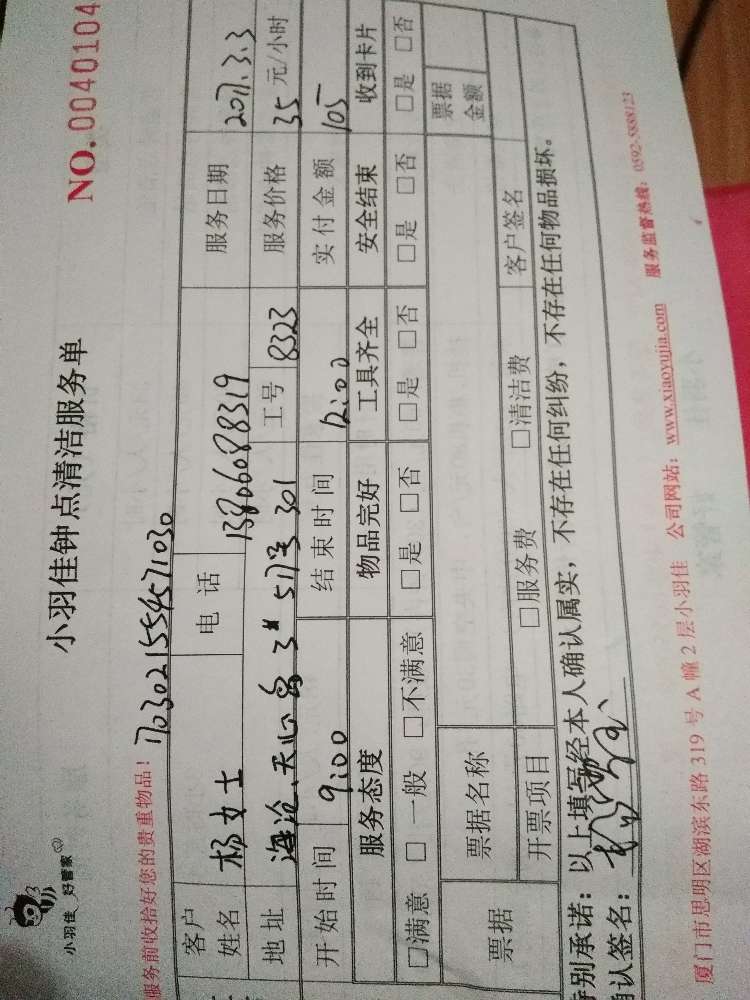 小羽佳 好管家
小羽佳钟点清洁服务单
NO. 0040104
服务前收拾好您的贵重物品！ 1703021554571030
客户姓名 杨女士 电话 13806088319 服务日期 2017.3.3
地址 海沧、天心岛 3# 517号 301 工号 8323 服务价格 35元/小时
开始时间 9:00 结束时间 12:00 实付金额 105
服务态度 物品完好 工具齐全 安全结束 收到卡片
□满意 □一般 □不满意 □是 □否 □是 □否 □是 □否 □是 □否
票据 票据名称 票据金额
开票项目 □服务费 □清洁费 客户签名
特别承诺：以上填写经本人确认属实，不存在任何纠纷，不存在任何物品损坏。
确认签名：
厦门市思明区湖滨东路 319 号 A 幢 2 层小羽佳 公司网站：www.xiaoyujia.com 服务监督热线：0592-5888123